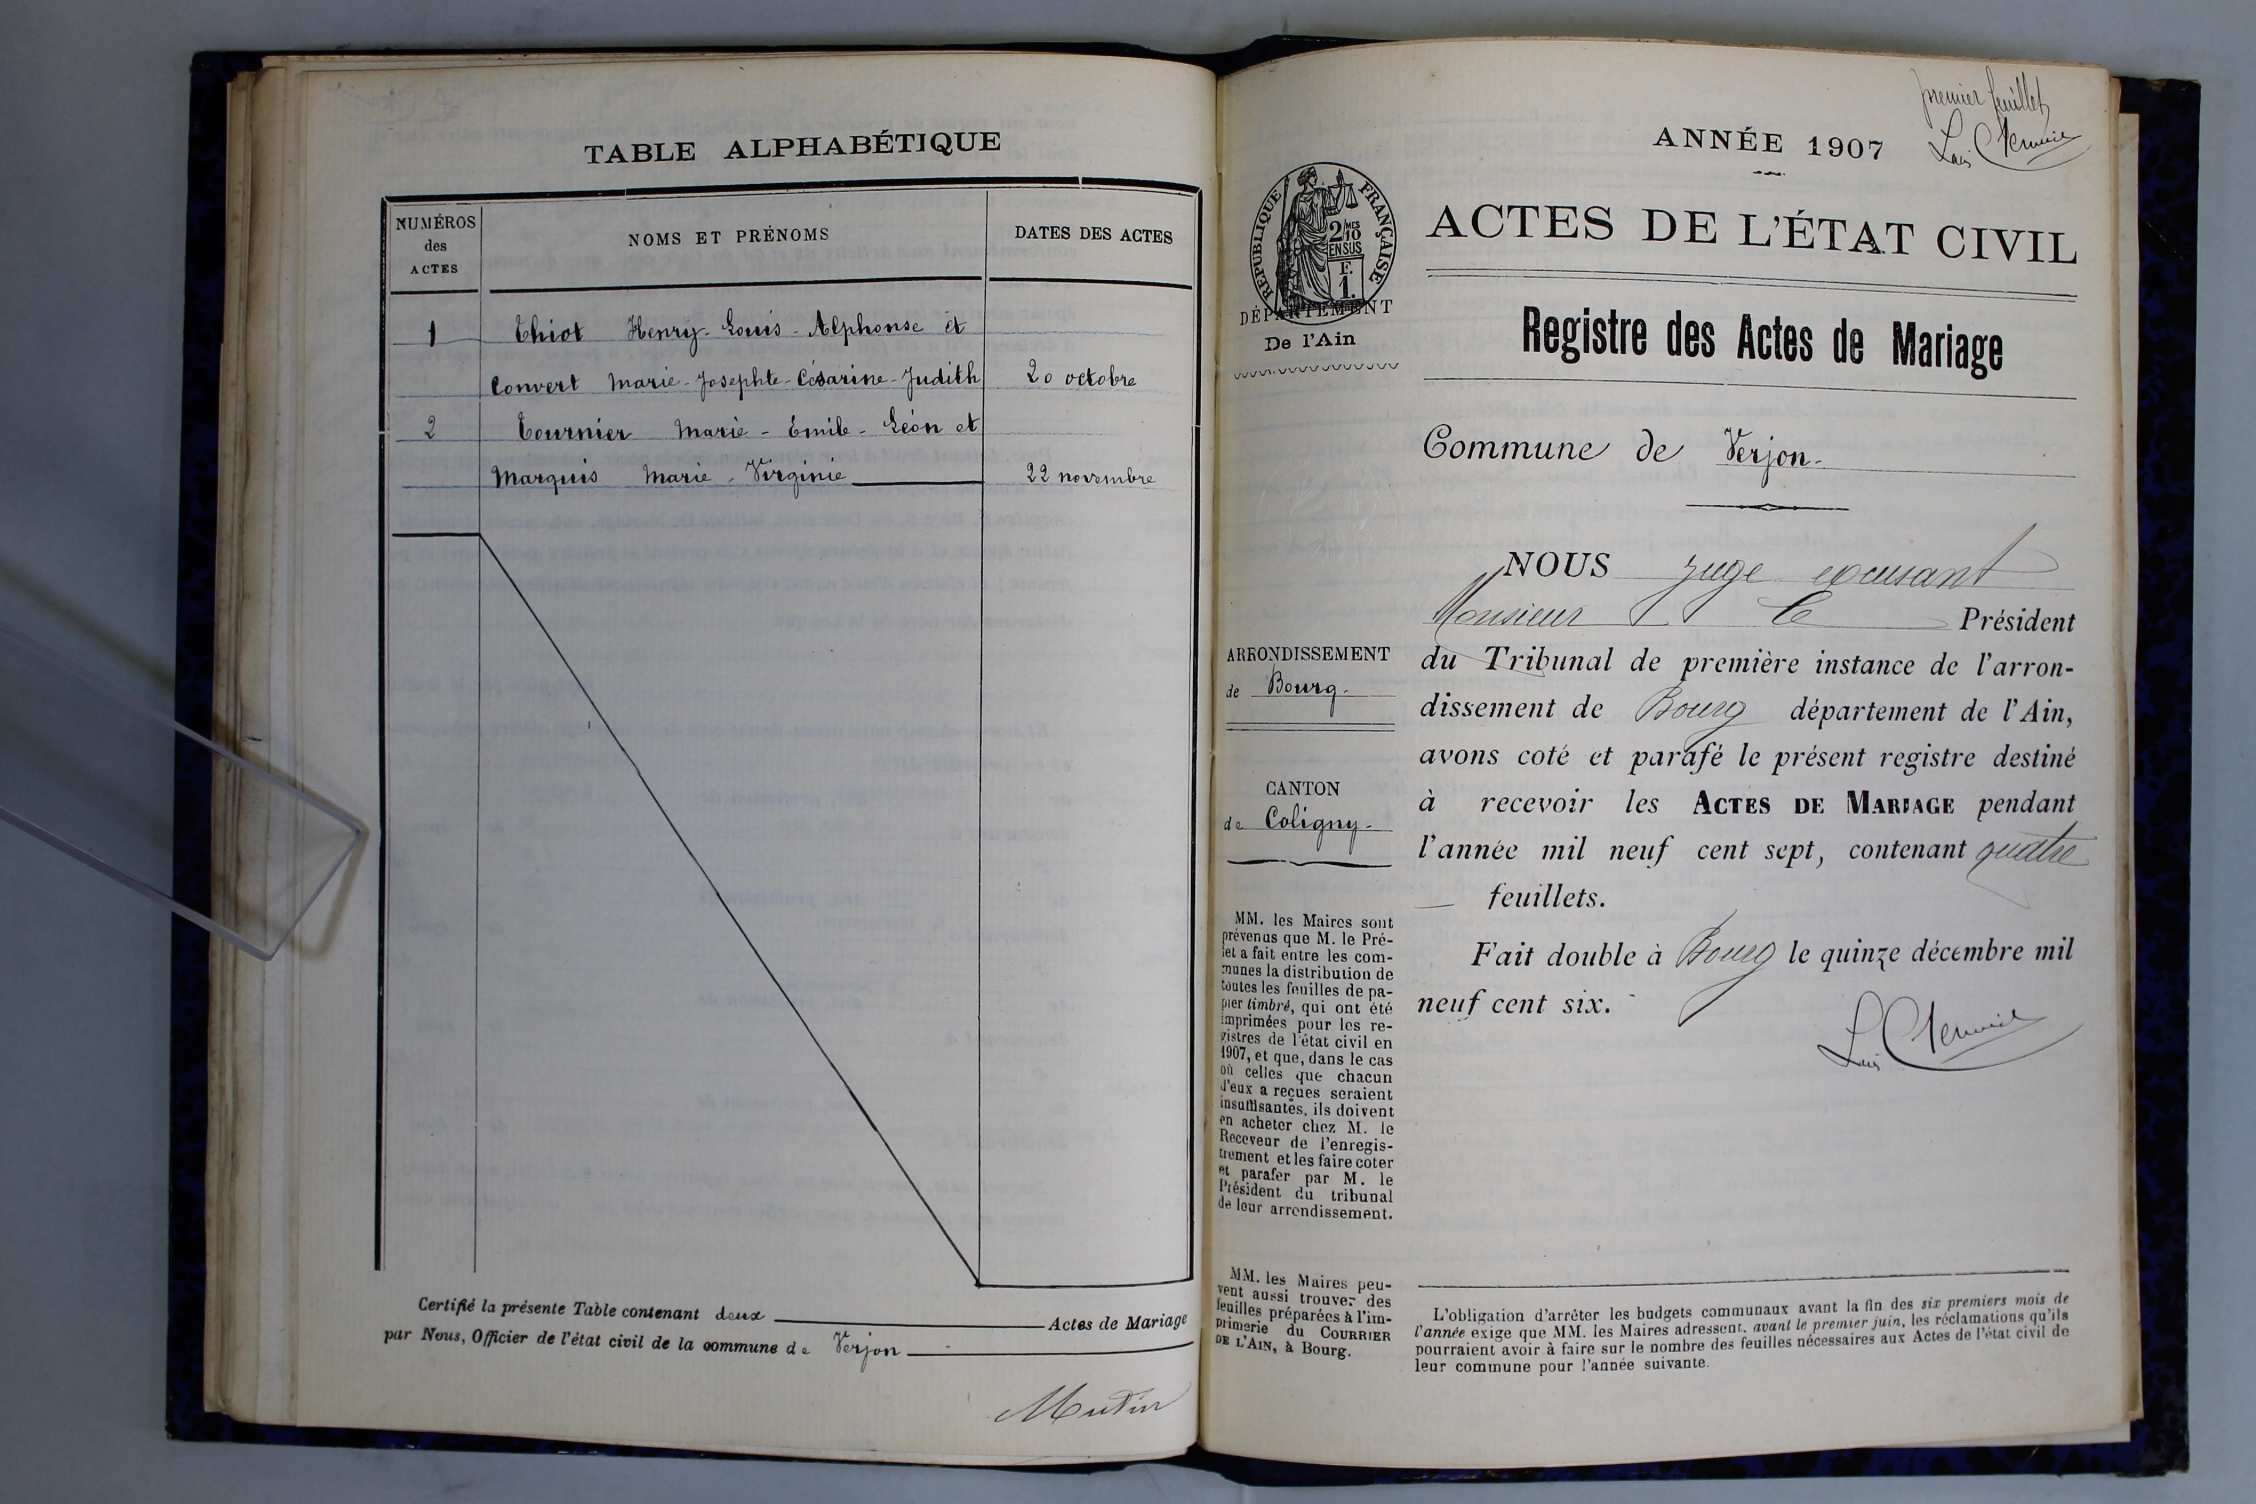 TABLE ALPHABÉTIQUE
NUMÉROS
des
ACTES
NOMS ET PRÉNOMS
DATES DES ACTES
1 Thiot Henry-Louis-Alphonse et
Convert Marie-Josephte-Césarine-Judith 20 octobre
2 Tournier Marie-Émile-Léon et
Marquis Marie-Virginie 22 novembre
Certifié la présente Table contenant deux Actes de Mariage
par Nous, Officier de l'état civil de la commune de Verjon
premier feuillet
ANNÉE 1907
ACTES DE L'ÉTAT CIVIL
Registre des Actes de Mariage
Commune de Verjon.
RÉPUBLIQUE FRANÇAISE
2/MES
10
EN SUS
F.
1.
DÉPARTEMENT
De l'Ain
ARRONDISSEMENT
de Bourg.
CANTON
de Coligny.
MM. les Maires sont
prévenus que M. le Pré-
fet a fait entre les com-
munes la distribution de
toutes les feuilles de pa-
pier timbré, qui ont été
imprimées pour les re-
gistres de l'état civil en
1907, et que, dans le cas
où celles que chacun
d'eux a reçues seraient
insuffisantes, ils doivent
en acheter chez M. le
Receveur de l'enregis-
trement et les faire coter
et parafer par M. le
Président du tribunal
de leur arrondissement.
MM. les Maires peu-
vent aussi trouver des
feuilles préparées à l'im-
primerie du COURRIER
DE L'AIN, à Bourg.
NOUS Juge
Monsieur le Président
du Tribunal de première instance de l'arron-
dissement de Bourg département de l'Ain,
avons coté et parafé le présent registre destiné
à recevoir les ACTES DE MARIAGE pendant
l'année mil neuf cent sept, contenant quatre
feuillets.
Fait double à Bourg le quinze décembre mil
neuf cent six.
L'obligation d'arrêter les budgets communaux avant la fin des six premiers mois de
l'année exige que MM. les Maires adressent, avant le premier juin, les réclamations qu'ils
pourraient avoir à faire sur le nombre des feuilles nécessaires aux Actes de l'état civil de
leur commune pour l'année suivante.